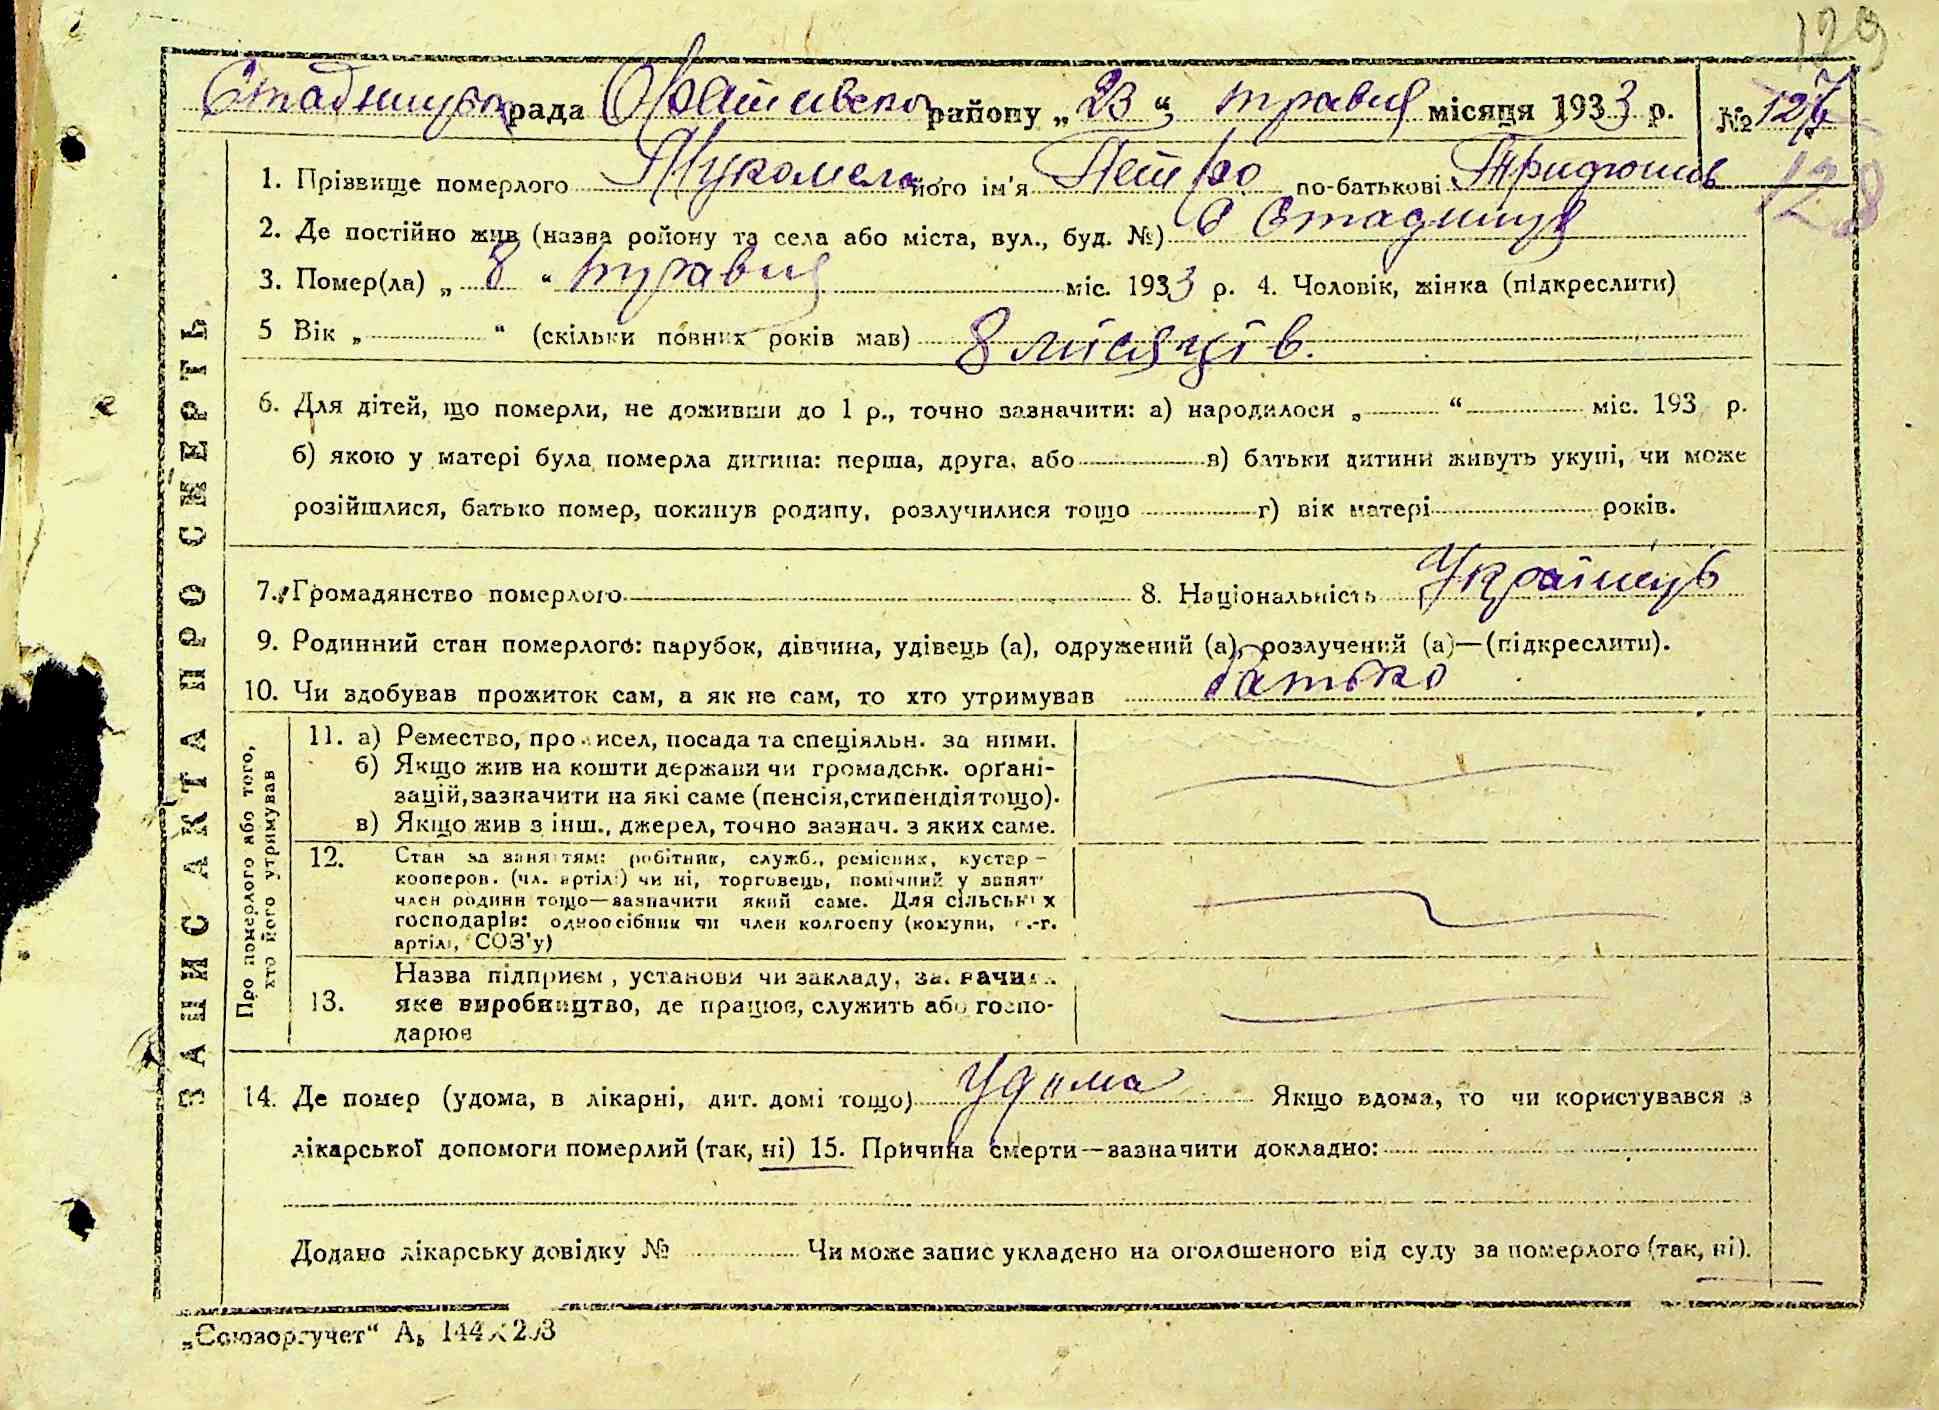 129
Стадницька рада Фастівського району „23“ травня місяця 1933 р. № 127
128
1. Прізвище померлого Мукомела його ім'я Петро по-батькові
2. Де постійно жив (назва ройону та села або міста, вул., буд. №) с Стадниця
3. Помер(ла) „ 8 “ травня міс. 1933 р. 4. Чоловік, жінка (підкреслити)
5 Вік „ “ (скільки повних років мав) 8 місяців.
6. Для дітей, що померли, не доживши до 1 р., точно зазначити: а) народилося „ “ міс. 193 р.
б) якою у матері була померла дитина: перша, друга, або в) батьки дитини живуть укупі, чи може
розійшлися, батько помер, покинув родину, розлучилися тощо г) вік матері років.
7. Громадянство померлого 8. Національність Українець
9. Родинний стан померлого: парубок, дівчина, удівець (а), одружений (а), розлучений (а)—(підкреслити).
10. Чи здобував прожиток сам, а як не сам, то хто утримував батько
ЗАПИС АКТА ПРО СМЕРТЬ
Про померлого або того,
хто його утримував
11. а) Ремество, промисел, посада та спеціяльн. за ними.
б) Якщо жив на кошти держави чи громадськ. органі-
зацій, зазначити на які саме (пенсія, стипендія тощо).
в) Якщо жив з інш., джерел, точно зазнач. з яких саме.
12. Стан за заняттям: робітник, служб., ремісник, кустар-
кооперов. (чл. артілі) чи ні, торговець, помічний у занят
член родини тощо—зазначити який саме. Для сільських
господарів: одноосібник чи член колгоспу (комуни, с.-г.
артілі, СОЗ'у)
Назва підприєм, установи чи закладу,
13. яке виробництво, де працює, служить або госпо-
дарює
14. Де помер (удома, в лікарні, дит. домі тощо) удома Якщо вдома, то чи користувався з
лікарської допомоги померлий (так, ні) 15. Причина смерти—зазначити докладно:
Додано лікарську довідку № Чи може запис укладено на оголошеного від суду за померлого (так, ні).
„Союзоргучет“